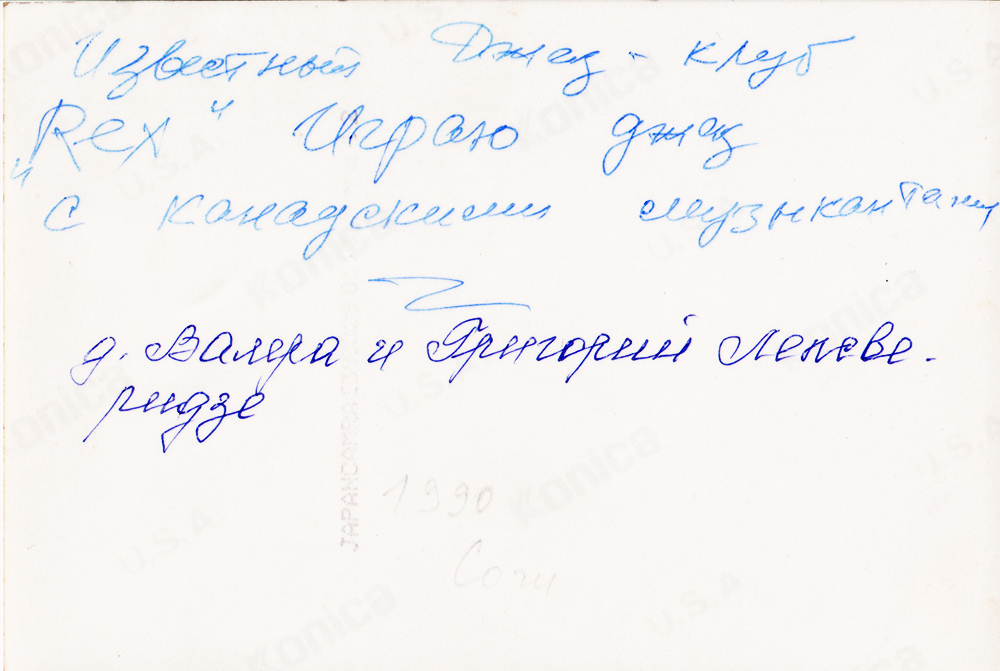 Известный Джаз-клуб
"Rex" Играю джаз
с канадскими музыкантами
д. Валера и Григорий
ридзе
JAPANCAMRA
1990
Сочи
Konica
U.S.A